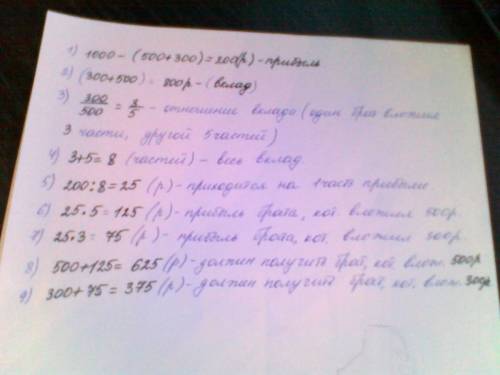 1) 1000 - (500+300) = 200(р) - прибыль
2) (300+500) = 800р - (вклад)
3) 300/500 = 3/5 - отношение вклада (один брат вложил
3 части, другой 5 частей)
4) 3+5= 8 (частей) - весь вклад.
5) 200:8=25 (р) - приходится на 1 част прибыли
6) 25·5=125 (р) - прибыль брата, кот. вложил 500р.
7) 25·3= 75 (р) - прибыль брата, кот. вложил 300р.
8) 500+125= 625 (р) - должен получить брат, кот. влож. 500р
9) 300+75 = 375 (р) - должен получить брат, кот. влож. 300р